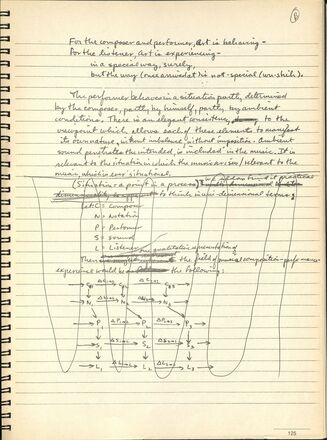 For the composer and performer, Art is behaving –
For the listener, Art is experiencing –
in a special way, surely,
but the way (once arrived at) is not-special (wu-shih).
The performer behaves in a situation partly determined
by the composer, partly by himself, partly by ambient
conditions. There is an elegant consistency to the
viewpoint which allows each of these elements to manifest
its own nature, without imbalance, without imposition. Ambient
sound penetrates the intended, is included in the music. It is
relevant to the situation in which the music arises / relevant to the
music, which is ever situational.
(Situation: a point in a process)
to think in dimensional terms;
let C = composer
N = Notation
P = Performer
S = Sound
L = Listener
representation
Then the field of musical composition-performance-
experience would be the following:
N₁ N₂ N₃
P₁ P₂ P₃
S₁ S₂ S₃
L₁ L₂ L₃
125